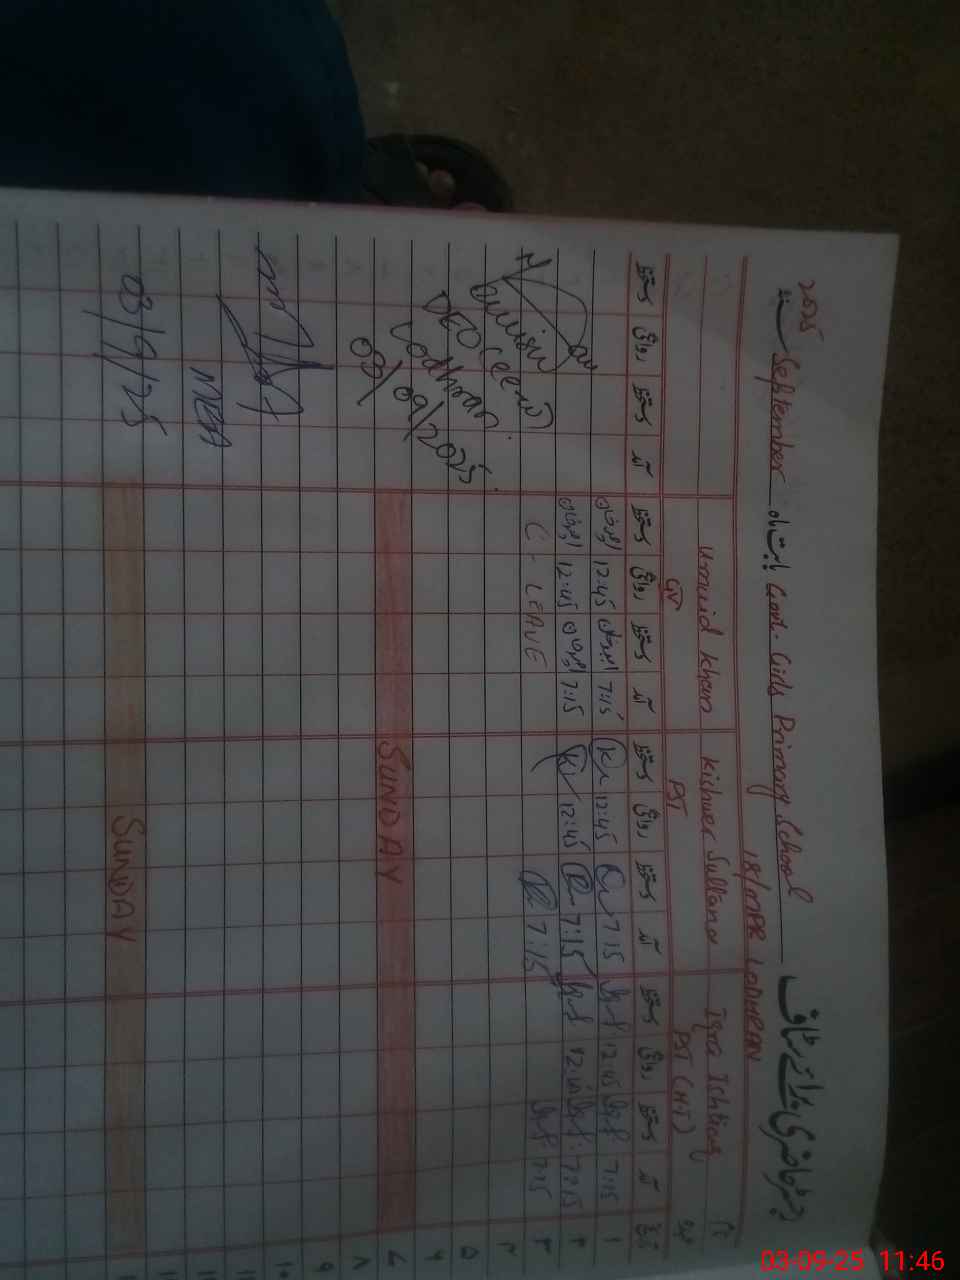 رجسٹر حاضری برائے سٹاف Govt. Girls Primary School بابت ماہ September سنہ 2025
18/MPR LODHRAN
نام Iqra Ishtiaq Kishwer Sultana Umaid Khan
عہدہ PST (H.T) PST
تاریخ آمد دستخط روانگی دستخط آمد دستخط روانگی دستخط آمد دستخط روانگی دستخط آمد دستخط روانگی دستخط
۱ 7:15 12:45 7:15 12:45 7:15 12:45
۲ 7:15 12:45 7:15 12:45 7:15 12:45
۳ 7:15 C-LEAVE
۴
۵
۶
۷ SUNDAY
۸
۹
۱۰
SUNDAY
DEO (EE-W)
Lodhran
03/09/2025
MEA
03/9/25
03-09-25 11:46